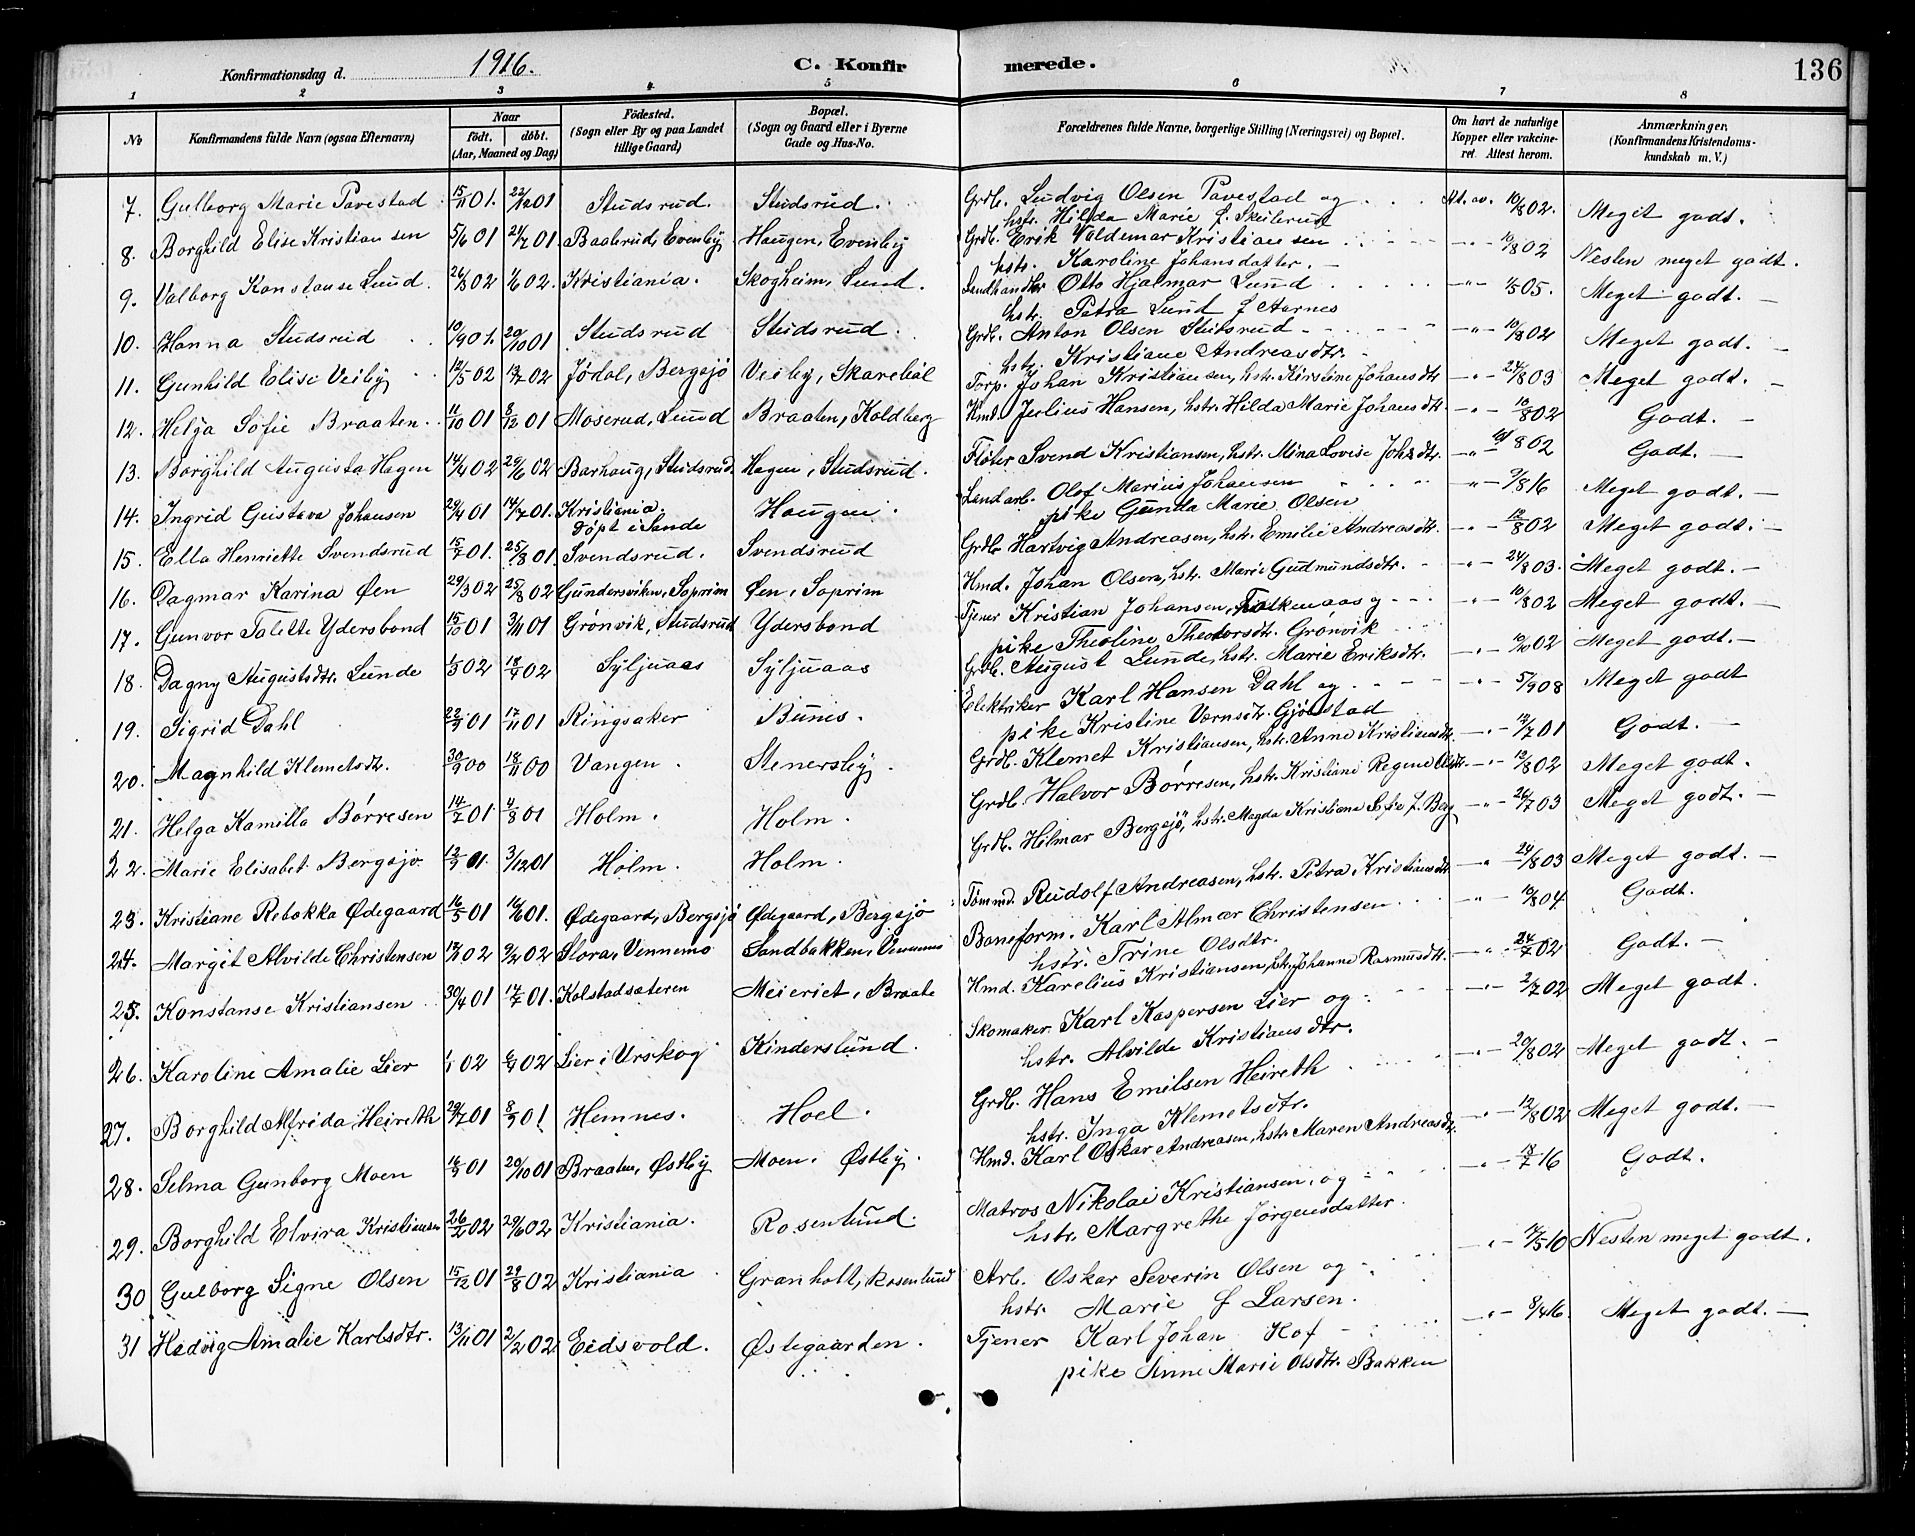 Konfirmationsdag d. 1916. C. Konfirmerede. 136
1 2 3 4 5 6 7 8
No Konfirmandens fulde Navn (ogsaa Efternavn) Naar født. døbt. (Aar, Maaned og Dag) Fødested. (Sogn eller By og paa Landet tillige Gaard) Bopæl. (Sogn og Gaard eller i Byerne Gade og Hus-No. Forældrenes fulde Navne, borgerlige Stilling (Næringsvei) og Bopæl. Om havt de naturlige Kopper eller vakcineret. Attest herom. Anmærkninger. (Konfirmandens Kristendomskundskab m. V.)
7. Gulborg Marie Pavestad 15/11 01. 22/12 01 Studsrud. Studsrud. Grdb. Ludvig Olsen Pavestad og At. av. 10/8 02. Meget godt.
hstr. Hilda Marie f. Skeilerud
8. Borghild Elise Kristiansen 5/6 01 21/7 01 Baalerud, Evenby Haugen, Evenby Grdb. Erik Valdemar Kristiansen -"- 10/8 02 Nesten meget godt.
hstr. Karoline Johansdatter.
9. Valborg Konstanse Lund. 26/3 02 1/6 02. Kristiania. Skogheim, Lund. Landhandler Otto Hjalmar Lund -"- 1/5 05. Meget godt.
hstr. Petra Lund f Aarnes
10. Hanna Studsrud 10/9 01. 20/10 01 Studsrud Studsrud. Grdb. Anton Olsen Studsrud -"- 10/8 02 Meget godt.
hstr. Kristiane Andreasdtr.
11. Gunhild Elise Veiby 12/5 02 13/7 02 Jödal, Bergsjö Veiby, Skarebøl Torp. Johan Kristiansen, hstr. Kirstine Johansdtr -"- 24/8 03 Meget godt.
12. Helga Sofie Braaten 11/10 01 8/12 01 Moserud, Lund Braaten, Koldberg Hmd. Julius Hansen, hstr. Hilda Marie Johansdtr. -"- 10/8 02 Godt.
13. Borghild Augusta Hagen 14/4 02 29/6 02 Barhaug, Studsrud. Hagen, Studsrud. Fløter Svend Kristiansen, hstr. Mina Lovise Johsdtr. -"- 10/8 02 Godt.
14. Ingrid Gustava Johansen 29/4 01 14/7 01. Kristiania. Döpt i Sande Haugen. Landarb. Olof Marius Johansen -"- 9/8 16 Meget godt.
pike Gunda Marie Olsen
15. Ella Henriette Svendsrud 15/7 01. 25/8 01 Svendsrud. Svendsrud Grdb. Hartvig Andreasen, hstr. Emilie Andreasdtr. -"- 12/8 02 Meget godt.
16. Dagmar Karina Øen 29/3 02 25/8 02 Gundersviken, Soprim Øen, Soprim Hmd. Johan Olsen, hstr. Marie Gudmundsdtr. -"- 24/8 03. Meget godt.
17. Gunvor Talette Ydersbond 15/10 01 3/11 01 Grönvik, Studsrud Ydersbond Tjener Kristian Johansen, Falkenaas og -"- 10/8 02 Meget godt.
pike Theoline Theodorsdtr. Grönvik
18. Dagny Augustsdtr. Lunde 1/3 02 18/4 02 Syljuaas Syljuaas Grdb. August Lunde, hstr. Marie Eriksdtr. -"- 10/10 02 Meget godt.
19. Sigrid Dahl 22/9 01 17/11 01 Ringsaker Bunes. Elektriker Karl Hansen Dahl og -"- 5/9 08 Meget godt
pike Kristine Værnsdtr. Gjölstad
20. Magnhild Klemetsdtr. 30/9 00 18/11 00 Vangen. Stenersby. Grdb. Klemet Kristiansen, hstr. Anne Kristiansdtr. -"- 12/7 01 Godt.
21. Helga Kamilla Børresen 14/7 01 4/8 01 Holm. Holm. Grdb. Halvor Børresen, hstr. Kristiane Regine Olsdtr. -"- 12/8 02 Meget godt.
22. Marie Elisabet Bergsjø 12/9 01. 3/12 01 Holm. Holm. Grdb. Hilmar Bergsjö, hstr. Magda Kristiane Sofie f. Berg -"- 24/7 03 Meget godt.
23. Kristiane Rebekka Ødegaard 16/5 01 16/6 01. Ødegaard, Bergsjö Ødegaard, Bergsjö Tømmd. Rudolf Andreasen, hstr. Petra Kristiansdtr. -"- 24/8 03 Meget godt.
24. Margit Alvilde Christensen 13/1 02 9/2 02 Slora, Vennemo Sandbakken, Vennemo Baneform. Karl Almar Christensen -"- 18/8 04 Godt.
hstr. Trine Olsdtr.
25. Konstanse Kristiansen 30/4 01 14/7 01. Kolstadsæteren Meieriet, Braate Hmd. Karelius Kristiansen, hstr. Johanne Rasmusdtr. -"- 24/7 02 Godt.
26. Karoline Amalie Lier 1/1 02 6/4 02 Lier i Urskog Kinderslund. Skomaker Karl Kaspersen Lier og -"- 2/7 02 Meget godt.
hstr. Alvilde Kristiansdtr.
27. Borghild Alfrida Heireth 29/7 01 8/9 01 Hemnes. Hoel. Grdb. Hans Emilsen Heireth -"- 20/8 02 Meget godt.
hstr. Inga Klemetsdtr.
28. Selma Gunborg Moen 16/9 01 20/10 01 Braaten, Østby Moen, Østby. Hmd. Karl Oskar Andreasen, hstr. Maren Andreasdtr. -"- 12/8 02 Meget godt.
29. Borghild Elvira Kristiansen 26/2 02 29/6 02 Kristiania. Rosenlund. Matros Nikolai Kristiansen, og -"- 17/7 16 Godt.
hstr. Margrethe Jörgensdatter.
30 Gulborg Signe Olsen 15/12 01 29/8 02 Kristiania Granholt, Rosenlund Arb. Oskar Severin Olsen og -"- 7/5 10 Nesten meget godt.
hstr. Marie f Larsen.
31 Hedvig Amalie Karlsdtr. 13/11 01 2/2 02 Eidsvold. Østegaarden. Tjener Karl Johan Hof -"- 8/4 16. Meget godt.
pike Anne Marie Olsdtr. Bakken